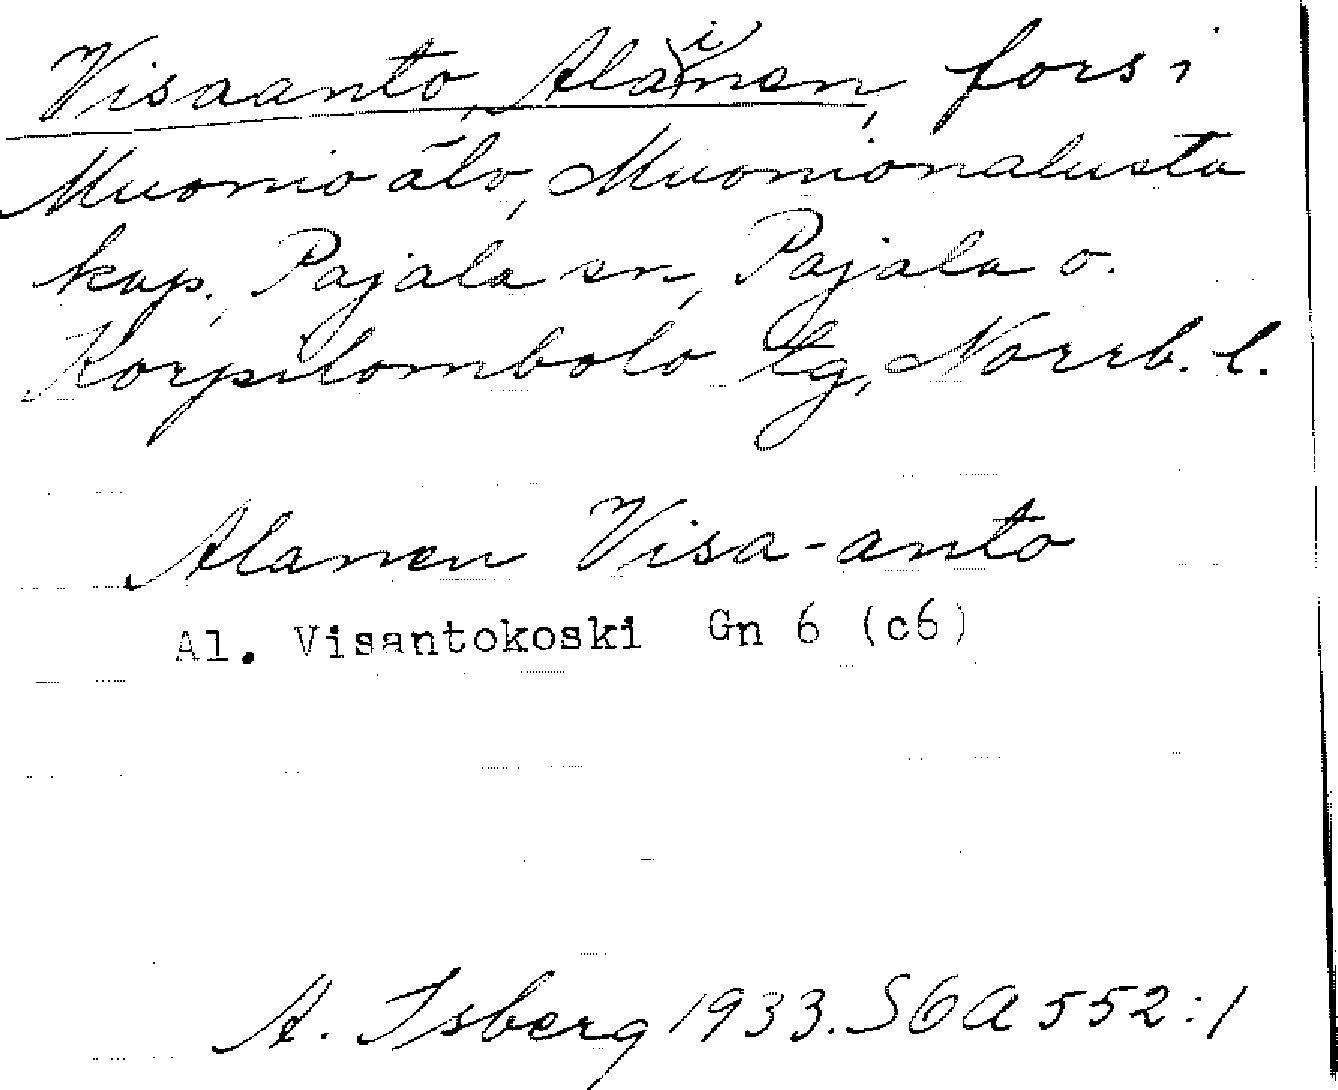 Visaanto, Alainen, fors i
Muonio älv, Muonionalusta
kap., Pajala sn, Pajala o.
Korpilombolo tg, Norrb. l.
Alanen Visa-anto
Al. Visantokoski Gn 6 (c6)
A. Isberg 1933. S6A 552:1